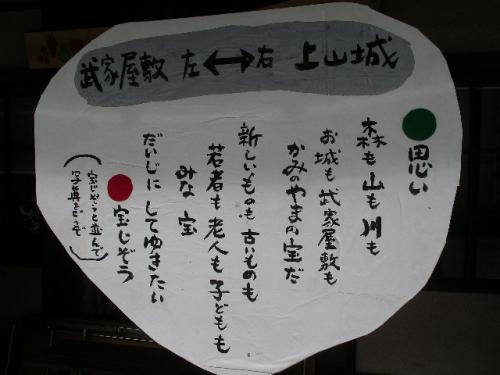 武家屋敷 左↔右 上山城
思い
森も 山も 川も
お城も 武家屋敷も
かみのやまの宝だ
新しいものも 古いものも
若者も 老人も 子どもも
みな 宝
だいじに してゆきたい
宝じぞう
(宝じぞうと並んで
写真をどうぞ)